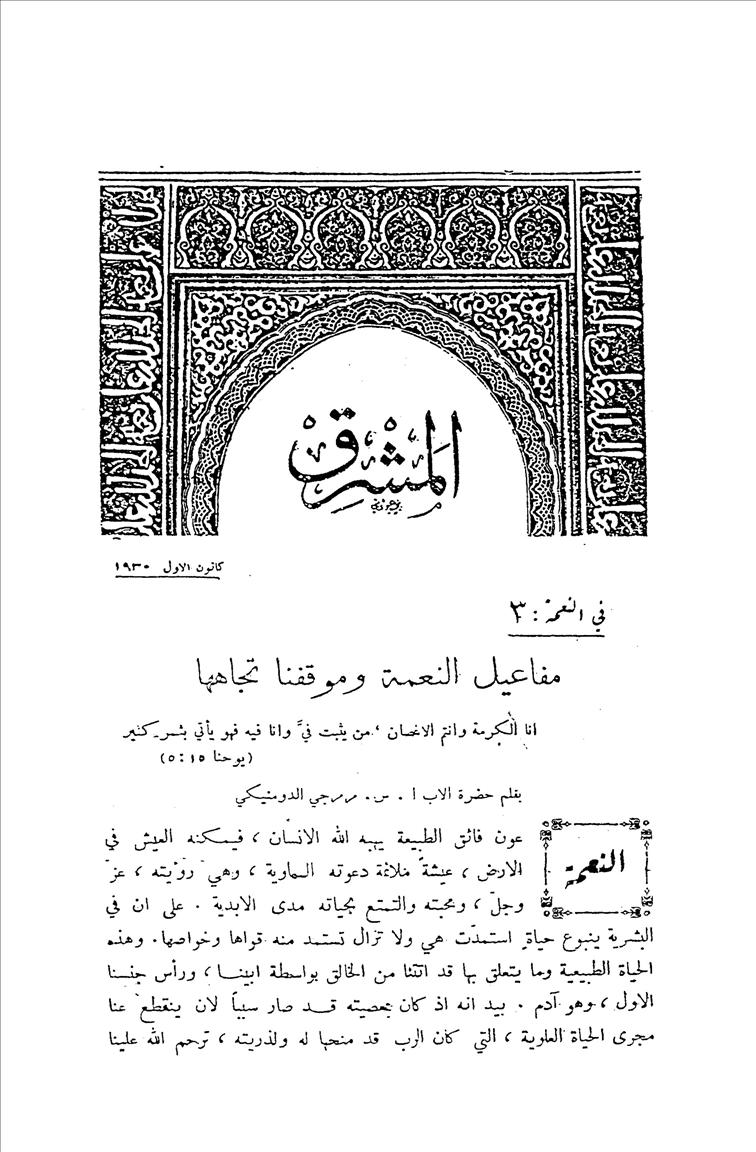 المشرق
كانون الاول ١٩٣٠
في النعمة : ٣
مفاعيل النعمة وموقفنا تجاهها
انا الكرمة وانتم الاغصان ، من يثبت فيَّ وانا فيه فهو يأتي بثمر كثير
(يوحنا ١٥ : ٥)
بقلم حضرة الاب ا . س . مرمرجي الدومنيكي
النعمة
عون فائق الطبيعة يهبه الله الانسان ، فيمكنه العيش في
الارض ، عيشةً ملائمة دعوته السماوية ، وهي رؤيته ، عزّ
وجلّ ، ومحبته والتمتع بحياته مدى الابدية . على ان في
البشرية ينبوع حياةٍ استمدّت هي ولا تزال تستمد منه قواها وخواصها. وهذه
الحياة الطبيعية وما يتعلق بها قد اتتنا من الخالق بواسطة ابينا ، ورأس جنسنا
الاول ، وهو آدم . بيد انه اذ كان بمعصيته قد صار سبباً لان ينقطع عنا
مجرى الحياة العلوية ، التي كان الرب قد منحها له ولذريته ، ترحم الله علينا